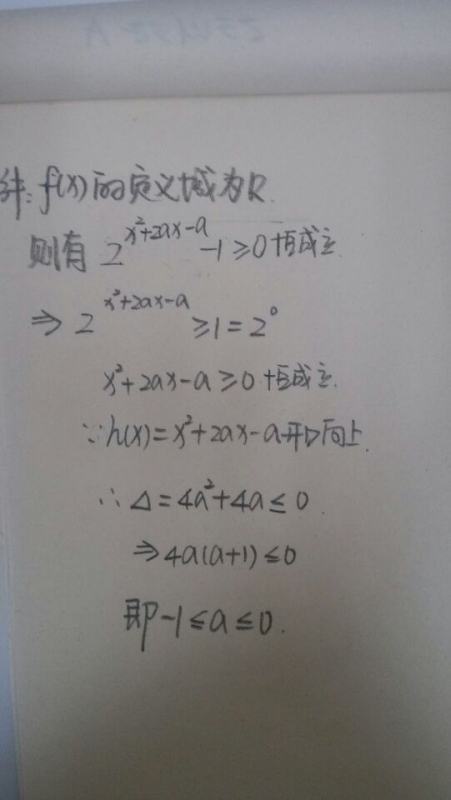 解: f(x)的定义域为R.
则有 2^{x²+2ax-a}-1≥0恒成立
⇒ 2^{x²+2ax-a}≥1=2⁰
x²+2ax-a≥0恒成立.
∵h(x)=x²+2ax-a开口向上.
∴ Δ=4a²+4a≤0.
⇒4a(a+1)≤0
即-1≤a≤0.